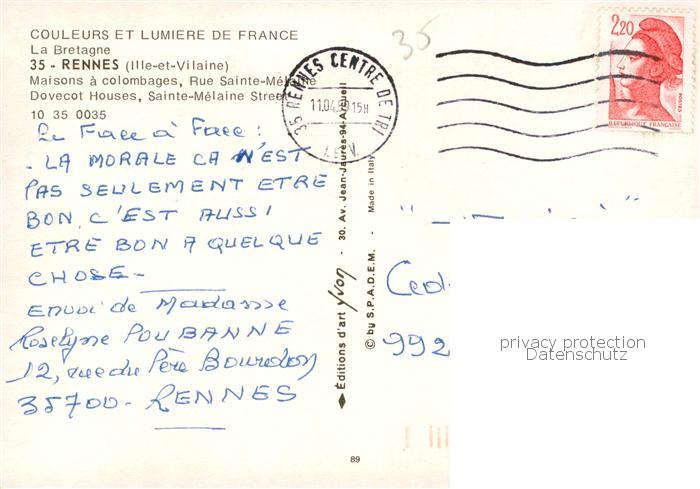 COULEURS ET LUMIERE DE FRANCE
La Bretagne
35 - RENNES (Ille-et-Vilaine)
Maisons à colombages, Rue Sainte-Mélaine
Dovecot Houses, Sainte-Mélaine Street
10 35 0035
35
35 RENNES CENTRE DE TRI
11.04. 15H
2,20
POSTES
REPUBLIQUE FRANÇAISE
Le Face à Face :
- LA MORALE CA N'EST
PAS SEULEMENT ETRE
BON, C'EST AUSSI
ETRE BON A QUELQUE
CHOSE -
Envoi de Madame
Roselyne POUBANNE
12, rue du Père Bourdon
35700 - RENNES
Éditions d'art Yvon - 30. Av. Jean-Jaurès-94-Arcueil
© by S.P.A.D.E.M. - Made in Italy
Ced
992
privacy protection
Datenschutz
89